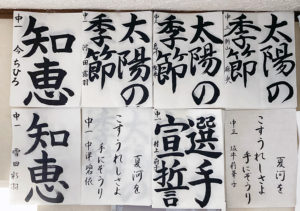 太陽の
季節
太陽の
季節
中一
太陽の
季節
中一
知恵
中一 今ちひろ
夏河を
こすうれしさよ
手にぞうり
中三
選手
宣誓
中一 村上
夏河を
こすうれしさよ
手にぞうり
中一 中津碧依
知恵
中一